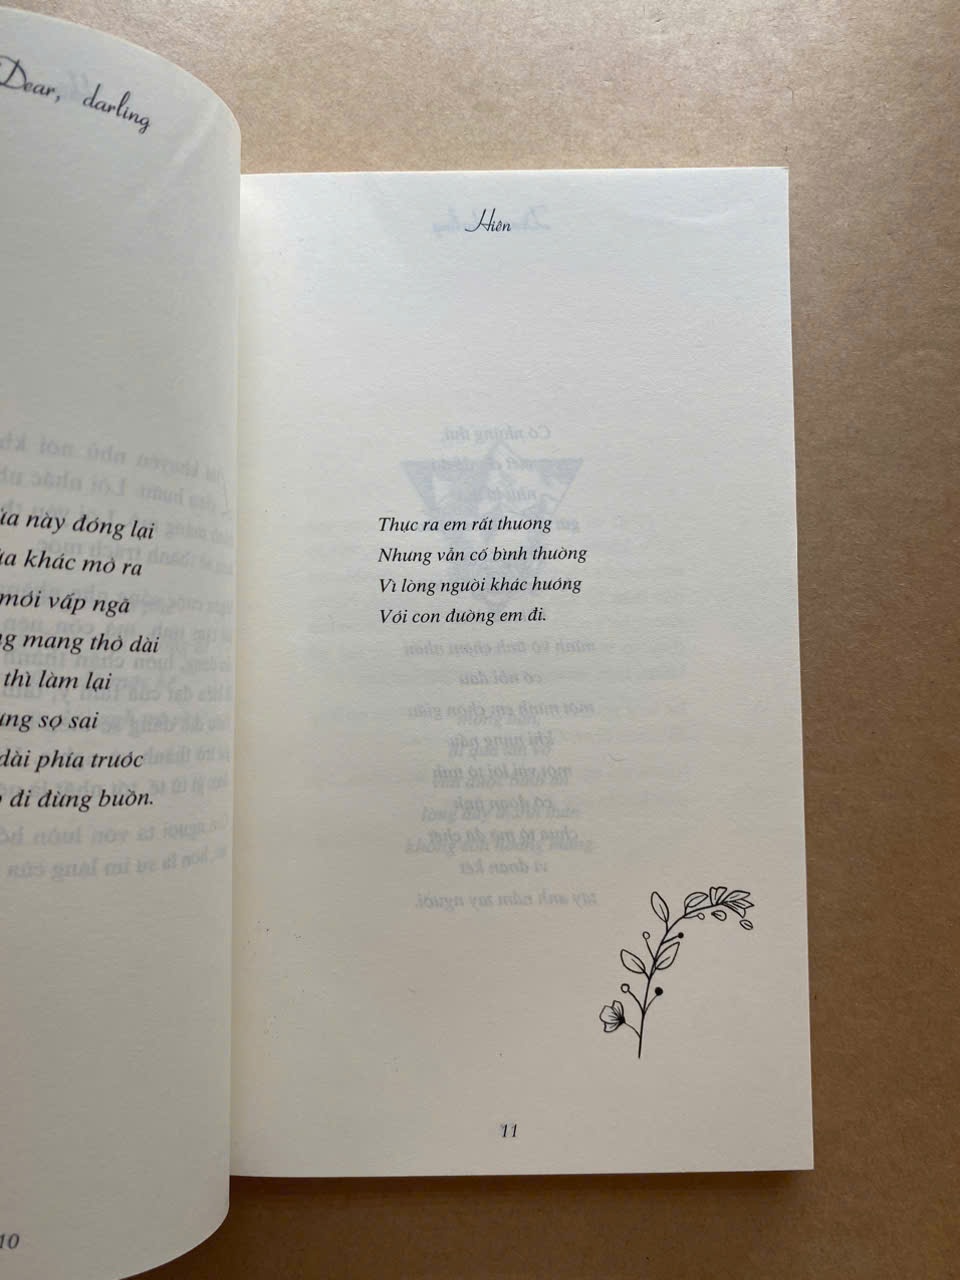 Dear, darling
này đóng lại
khác mở ra
mới vấp ngã
mang thở dài
thì làm lại
sợ sai
dài phía trước
đi đừng buồn.
10
Hiên
Thực ra em rất thương
Nhưng vẫn cố bình thường
Vì lòng người khác hướng
Với con đường em đi.
11